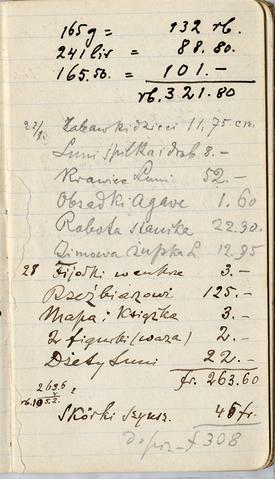 165 g = 132 rb.
241 lir = 88.80.
165.50. = 101.-
rb. 321.80
27/ Zabawki dzieci 11,75 cm.
Luni szpilka i drob. 8.-
Krawiec Luni 52.-
Obsadki Agave 1.60
Robota stanika 22.30.
Zimowa 12.95
28 Fijołki w cukrze 3.-
Rzeźbiarzowi 125.-
Mapa i Książka 3.-
2 figurki (waza) 2.-
Luni 22.-
fr. 263.60
263.6
Skórki 45 fr.
308